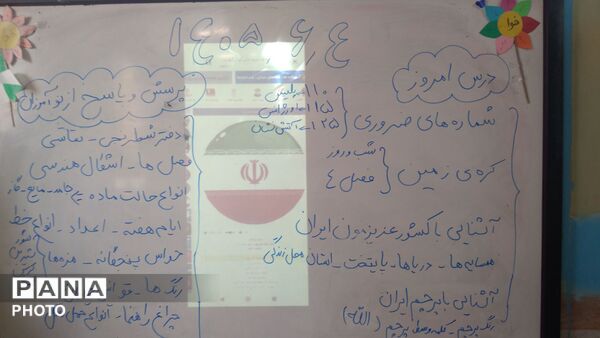 ۱۴۰۵/۶/۴
درس امروز
شماره های ضروری
۱۱۰ پلیس
۱۱۵ اورژانس
۱۲۵ آتش نشان
کره ی زمین
شب و روز
۴ فصل
آشنایی با کشور عزیزمون ایران
همسایه ها - دریاها - پایتخت - استان محل زندگی
آشنایی با پرچم ایران
رنگ پرچم - کلمه وسط پرچم (الله)
پرسش و پاسخ از نوآموزان
دفتر شطرنجی - نقاشی
فصل ها - اشکال هندسی
انواع حالت ماده جامد - مایع - گاز
ایام هفته - اعداد - انواع خط
حواس پنجگانه - مزه ها
رنگ ها
چراغ راهنما - انواع حمل
هوا
PANA
PHOTO